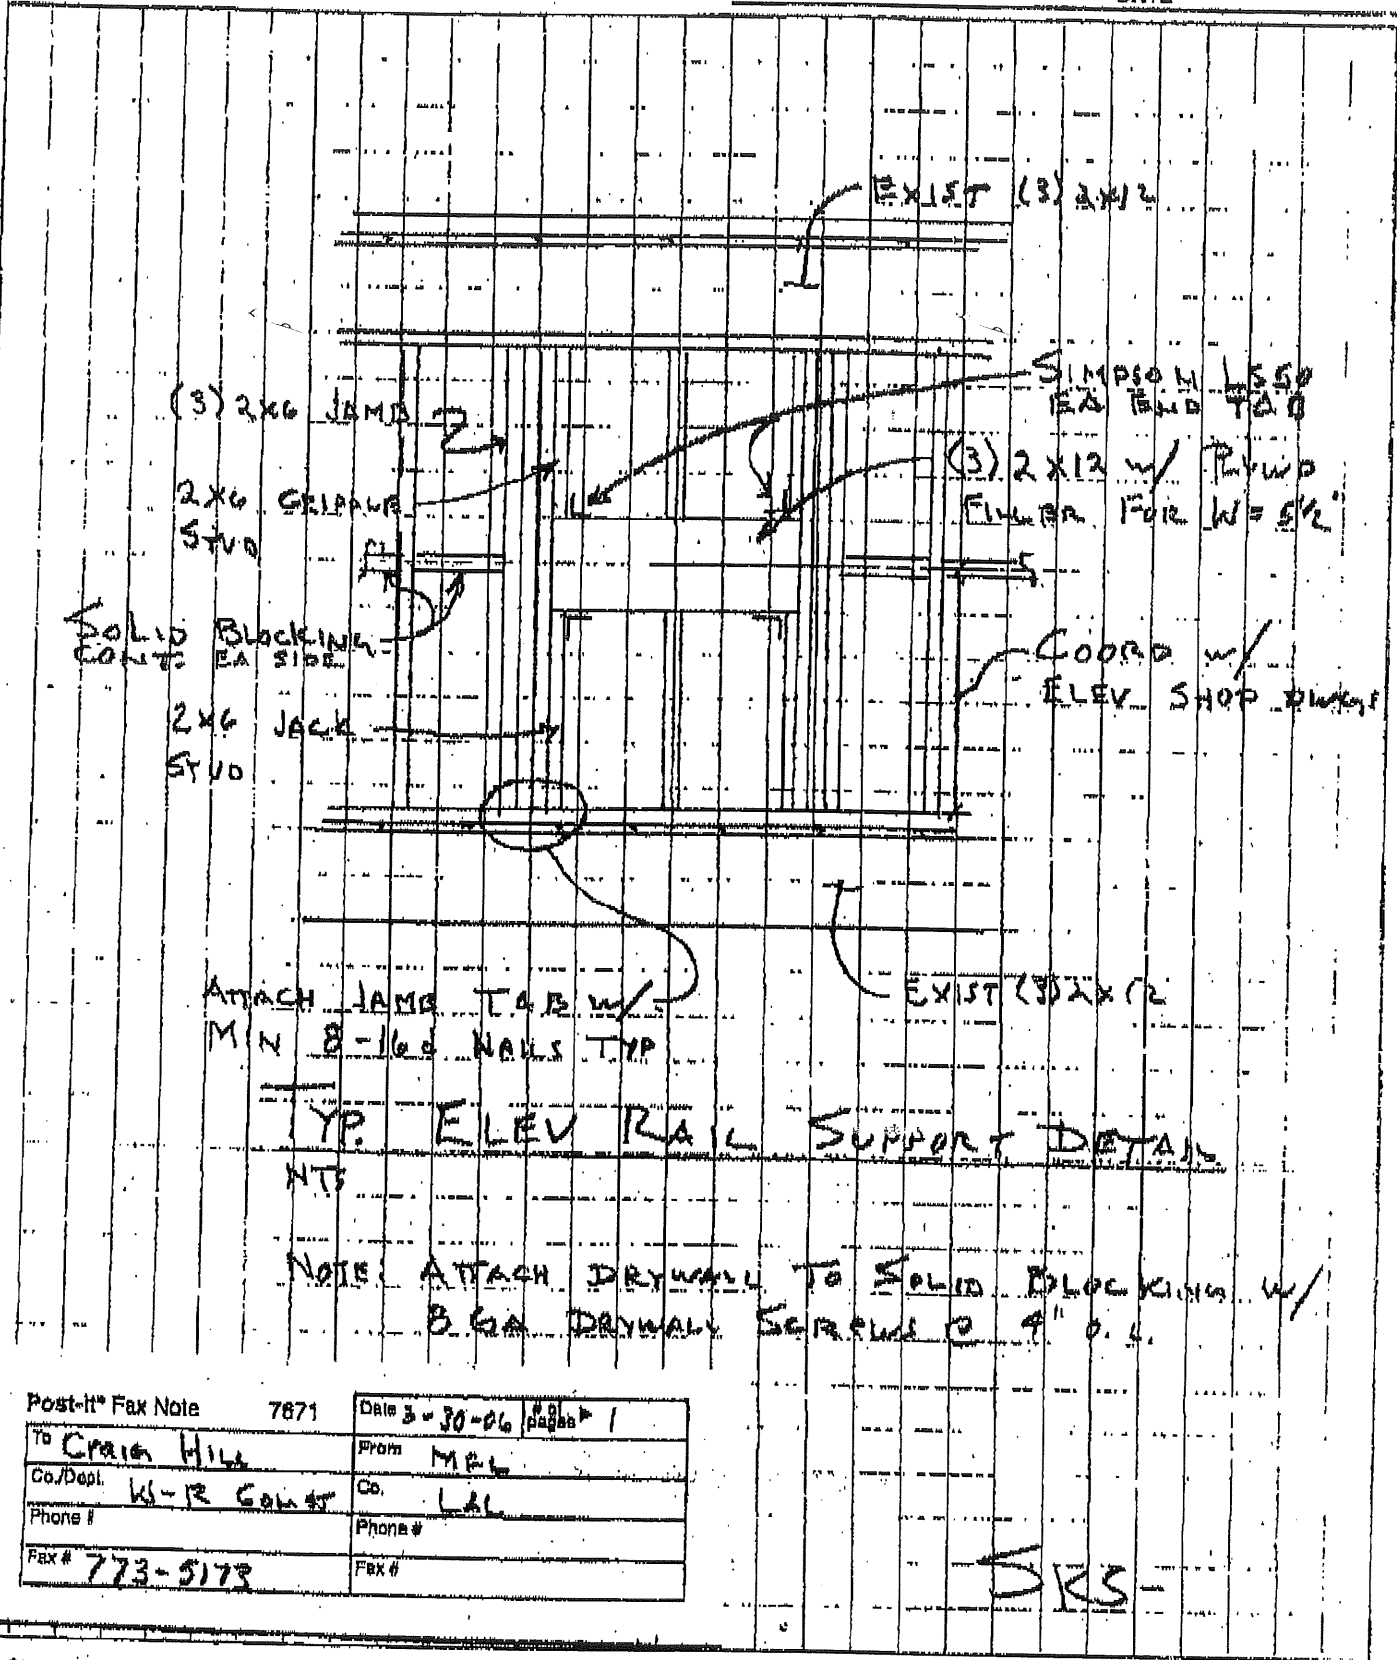 EXIST (3) 2X12
SIMPSON LS50
EA END T&B
(3) 2X6 JAMB
(3) 2X12 W/ PLYWD
FILLER FOR W = 5 1/2"
2X6 CRIPPLE
STUD
SOLID BLOCKING
CONT. EA SIDE
COORD W/
ELEV SHOP DWGS
2X6 JACK
STUD
EXIST (3) 2X12
ATTACH JAMB T&B W/
MIN 8-16d NAILS TYP
TYP. ELEV RAIL SUPPORT DETAIL
NTS
NOTE: ATTACH DRYWALL TO SOLID BLOCKING W/
8 GA DRYWALL SCREWS @ 4" O.C.
Post-it® Fax Note 7671
Date 3-30-06 # of pages ▶ 1
To Craig Hill
From MEL
Co./Dept. W-R Const
Co. LAL
Phone #
Phone #
Fax # 773-5173
Fax #